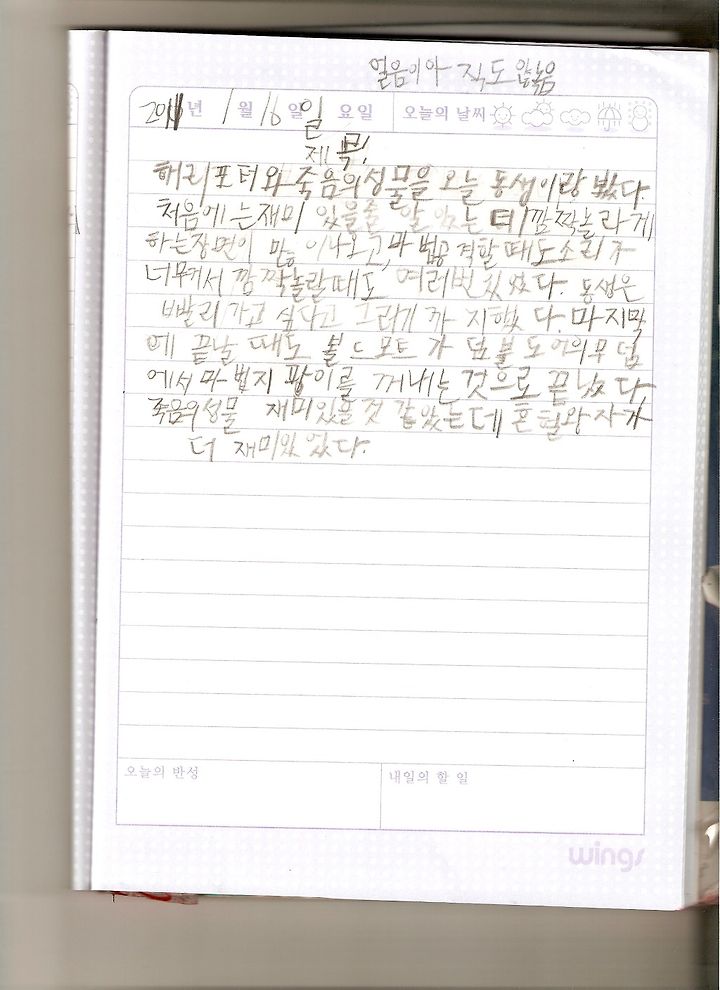 얼음이아 직도 않녹음
2011년 1월 16일 일 요일 오늘의 날씨
제 목!
해리포터와 죽음의성물을 오늘 동생이랑 봤다.
처음에는재미 있을줄 알 았는 데 깜짝놀라게
하는장면이 많 이나오고, 마 법공 격할 때도소리 가
너무커서 깜 짝놀랄때도 여러번 있었다. 동생은
빨리 가고 싶다고 그러기 까 지했 다. 마 지막
에 끝날 때도 볼 드모트 가 덤 블 도 어의무 덤
에서 마 법지 팡이를 꺼내는 것으로 끝 났 다.
죽음의성물 재미있을 것 같 았는데 혼 혈왕 자가
더 재미있 었다.
오늘의 반성 내일의 할 일
wings